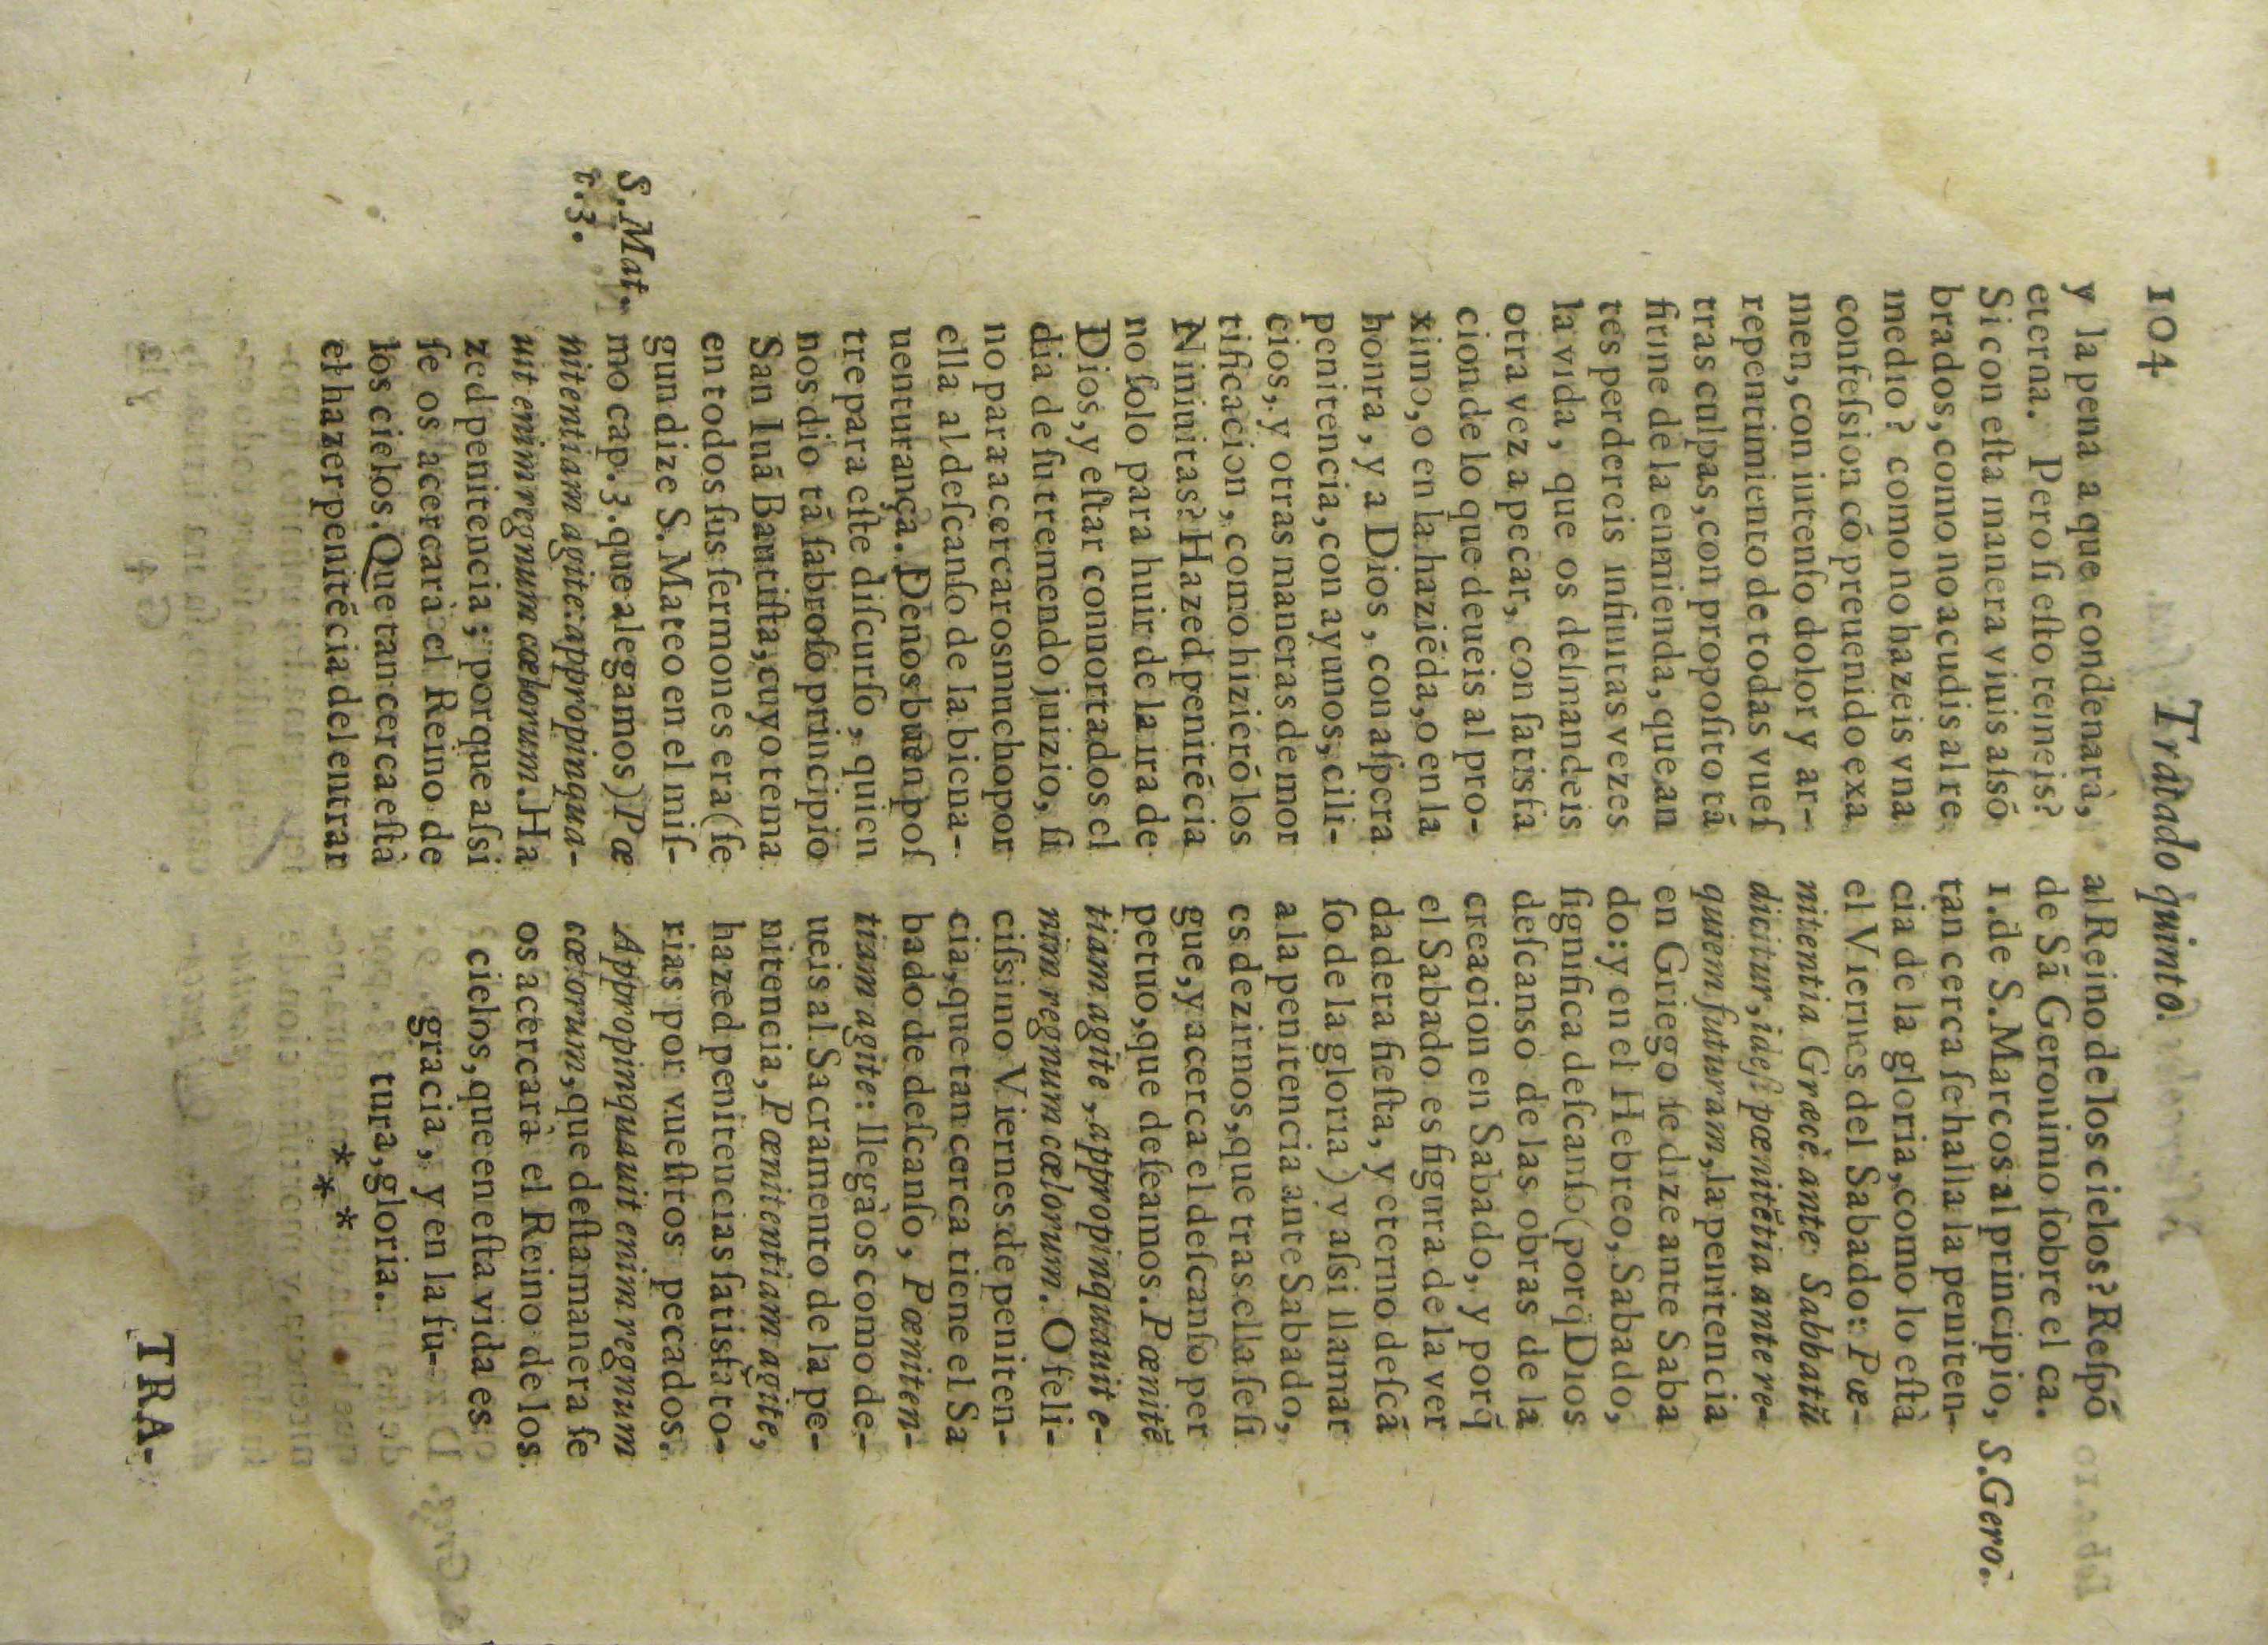 104
Tratado quinto.
y la pena a que condenarà,
eterna. Pero ſi eſto temeis?
Si con eſta manera viuis aſsō
brados, como no acudis al re
medio? como no hazeis vna
confeſsion cō preuenido exa
men, con intenſo dolor y ar-
repentimiento de todas vueſ
tras culpas, con propoſito tā
firme de la enmienda, que an
tes perdereis infinitas vezes
la vida, que os deſmandeis
otra vez a pecar, con ſatisfa
cion de lo que deueis al pro-
ximo, o en la haziēda, o en la
honra, y a Dios, con aſpera
penitencia, con ayunos, cili-
cios, y otras maneras de mor
tificacion, como hizierō los
Niniuitas? Hazed penitēcia
no ſolo para huir de la ira de
Dios, y eſtar connortados el
dia de ſu tremendo juizio, ſi
no para acercaros mucho por
ella al deſcanſo de la biena-
uenturança. Dènos buen poſ
tre para eſte diſcurſo, quien
nos dio tā ſabroſo principio
San Iuā Bautiſta, cuyo tema
en todos ſus ſermones era (ſe
gun dize S. Mateo en el miſ-
S. Mat.
mo cap. 3. que alegamos) Pœ
c. 3.
nitentiam agite: appropinqua-
uit enim regnum cœlorum. Ha
zed penitencia; porque aſsi
ſe os acercarà el Reino de
los cielos. Que tan cerca eſtà
el hazer penitēcia del entrar
al Reino de los cielos? Reſpō
de Sā Geronimo ſobre el ca.
1. de S. Marcos al principio,
S. Gero.
tan cerca ſe halla la peniten-
cia de la gloria, como lo eſtà
el Viernes del Sabado: Pœ-
nitentia Græcè ante Sabbatū
dicitur, ideſt pœnitētia ante re-
quiem futuram, la penitencia
en Griego ſe dize ante Saba
do: y en el Hebreo, Sabado,
ſignifica deſcanſo (porq̄ Dios
deſcanso de las obras de la
creacion en Sabado, y porq̄
el Sabado es figura de la ver
dadera fieſta, y eterno deſcā
ſo de la gloria) y aſsi llamar
a la penitencia ante Sabado,
es dezirnos, que tras ella ſe ſi
gue, y acerca el deſcanſo per
petuo, que deſeamos. Pœnitē
tiam agite, appropinquauit e-
nim regnum cœlorum. O feli-
ciſsimo Viernes de peniten-
cia, que tan cerca tiene el Sa
bado de deſcanſo, Pœniten-
tiam agite: llegàos como de-
ueis al Sacramento de la pe-
nitencia, Pœnitentiam agite,
hazed penitencias ſatisfato-
rias por vueſtros pecados.
Appropinquauit enim regnum
cœlorum, que deſta manera ſe
os acercarà el Reino de los
cielos, que en eſta vida es
gracia, y en la fu-
tura, gloria.
* * *
TRA-